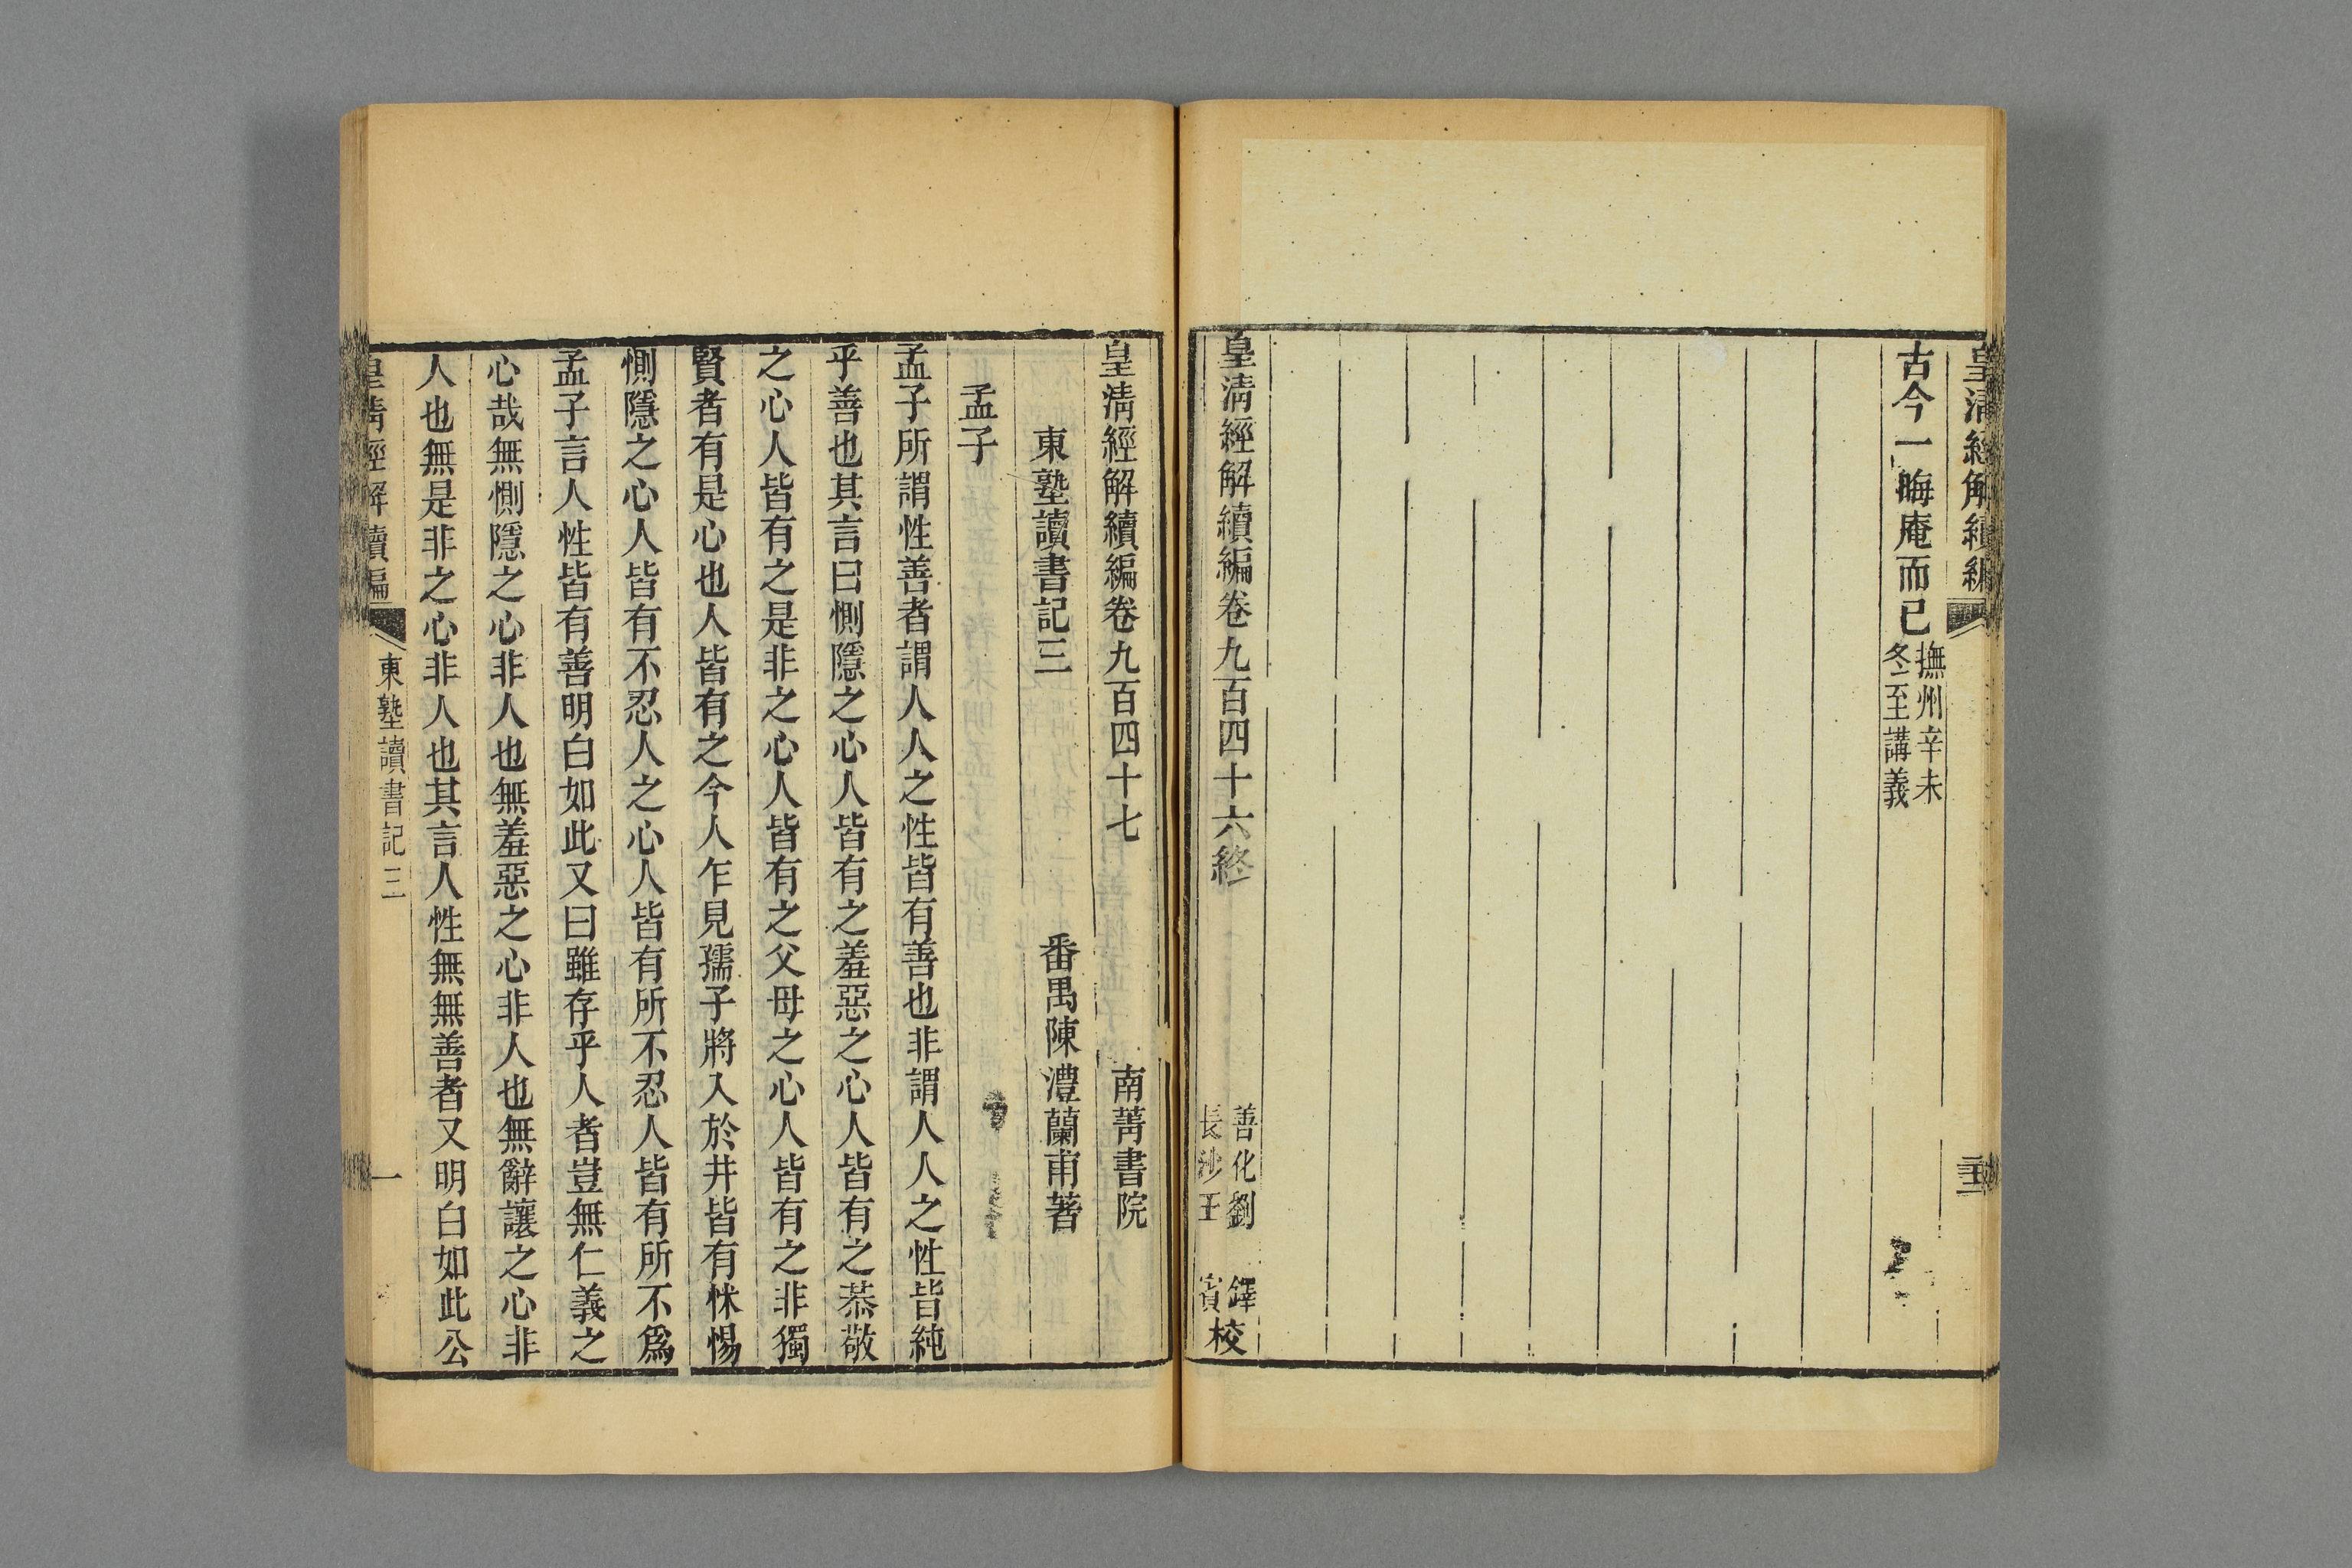 皇清經解續編
古今一晦庵而已撫州辛未冬至講義
皇清經解續編卷九百四十六終
善化劉鐸
長沙王賓
校
皇清經解續編卷九百四十七
南菁書院
東塾讀書記三
番禺陳澧蘭甫著
孟子
孟子所謂性善者謂人人之性皆有善也非謂人人之性皆純
乎善也其言曰惻隱之心人皆有之羞惡之心人皆有之恭敬
之心人皆有之是非之心人皆有之父母之心人皆有之非獨
賢者有是心也人皆有之今人乍見孺子將入於井皆有怵惕
惻隱之心人皆有不忍人之心人皆有所不忍人皆有所不爲
孟子言人性皆有善明白如此又曰雖存乎人者豈無仁義之
心哉無惻隱之心非人也無羞惡之心非人也無辭讓之心非
人也無是非之心非人也其言人性無無善者又明白如此公
皇清經解續編
東塾讀書記三
一